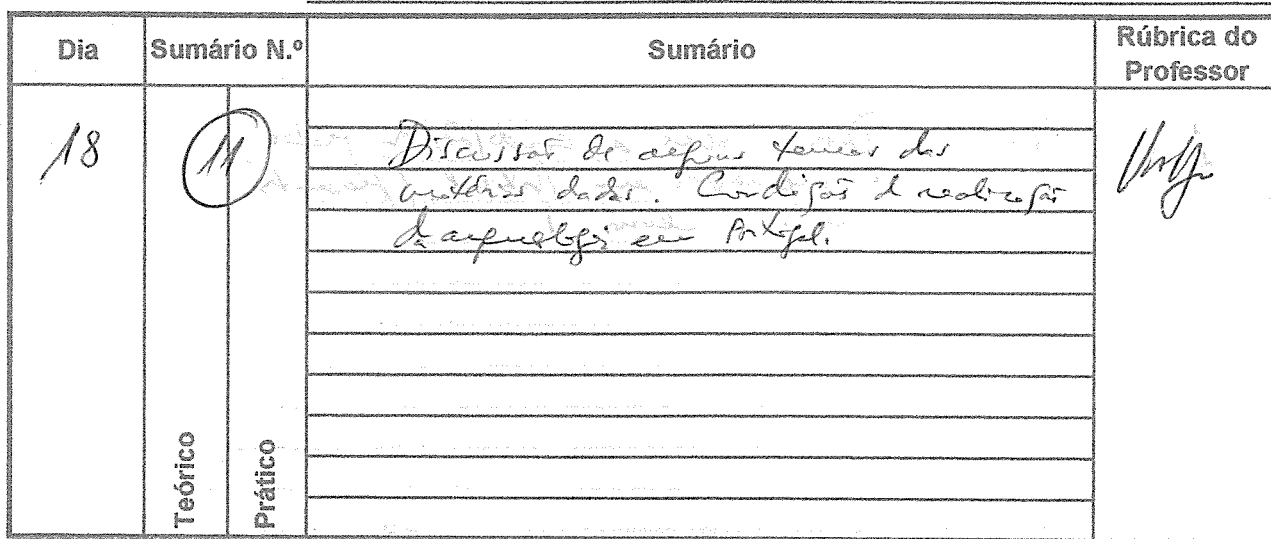 Dia
Sumário N.º
Sumário
Rúbrica do
Professor
18
11
Discussão de alguns temas das
matérias dadas. Condições de realização
da arqueologia em Portugal.
Teórico
Prático